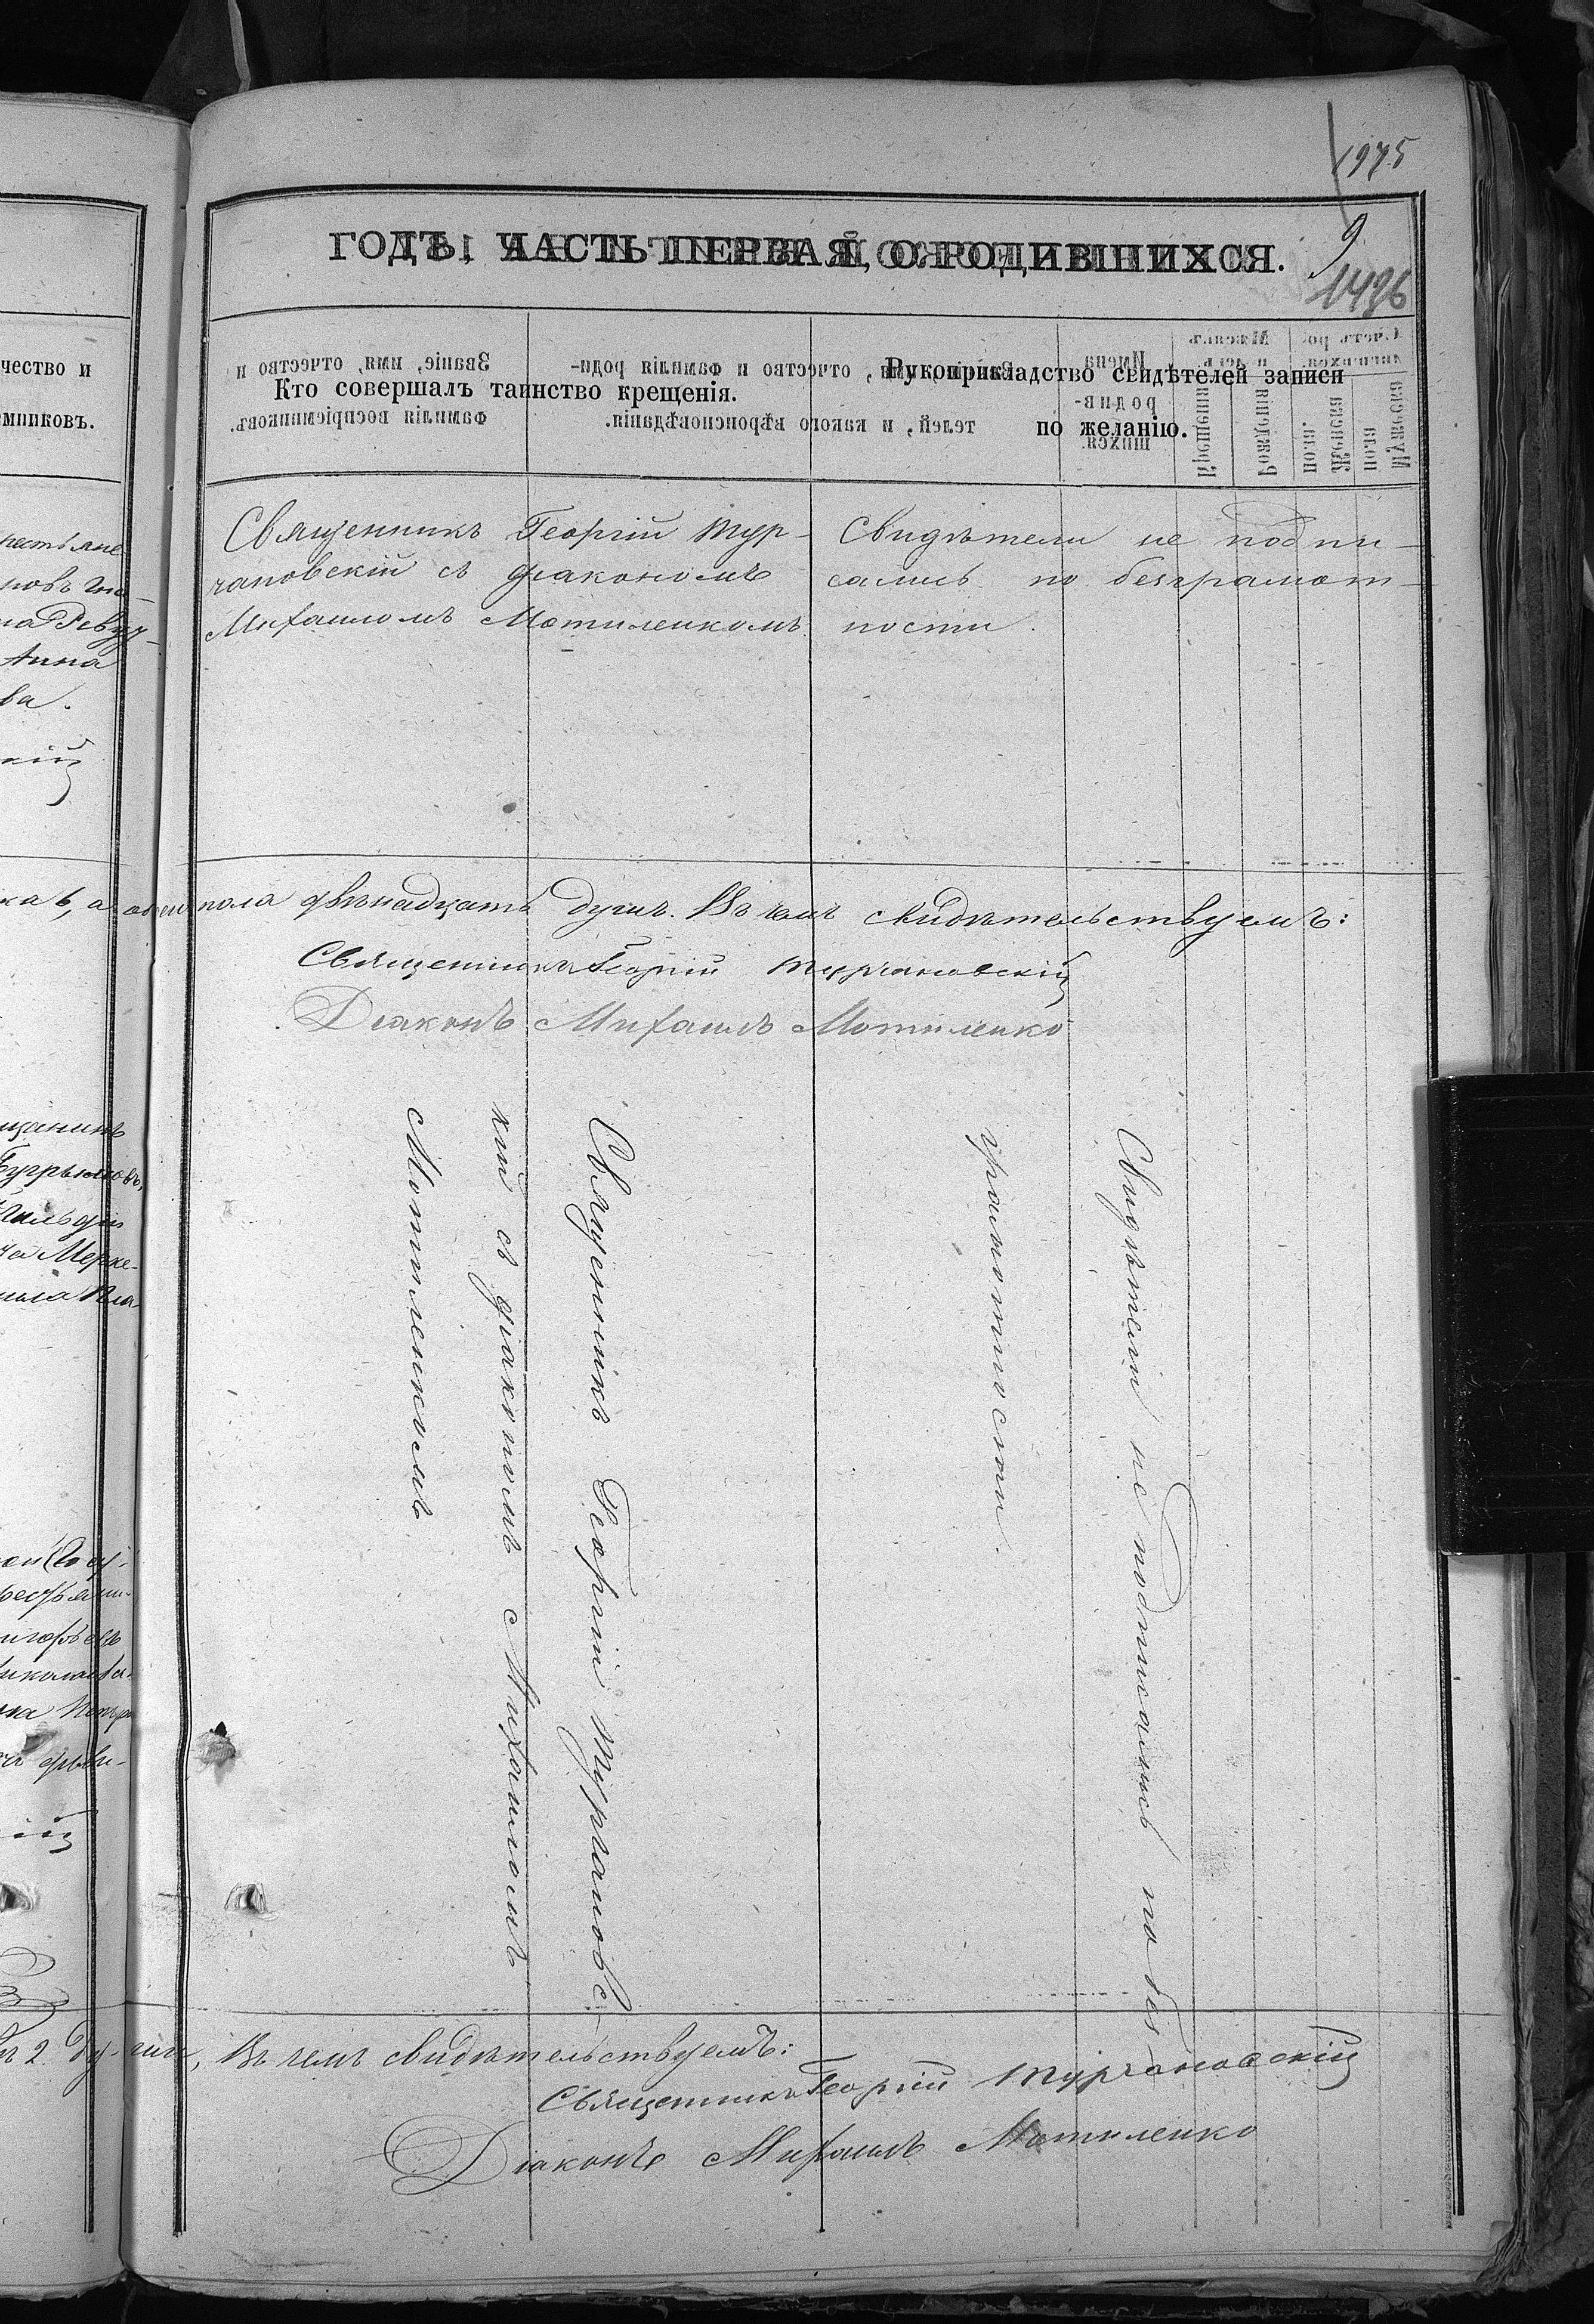 1975
9
1496
ГОДЪ, ЧАСТЬ ПЕРВАЯ, О РОДИВШИХСЯ.
чество и
емниковъ.
Кто совершалъ таинство крещенія.
Рукоприкладство свидѣтелей записи
по желанію.
Священникъ Георгій Тур-
чановскій съ діакономъ
Михаиломъ Мотиленкомъ
Свидѣтели не подпи-
сались по безграмот-
ности.
Анна
ва.
кій
пола двѣнадцать душъ. Въ чемъ свидѣтельствуемъ:
Священникъ Георгій Турчановскій
Діаконъ Михаилъ Мотиленко
Свидѣтели не подписались по без-
грамотности.
Священникъ Георгій Турчановс-
кій съ діакономъ Михаиломъ
Мотиленкомъ
2 ду-ши, Въ чемъ свидѣтельствуемъ:
Священникъ Георгій Турчановскій
Діаконъ Михаилъ Мотиленко